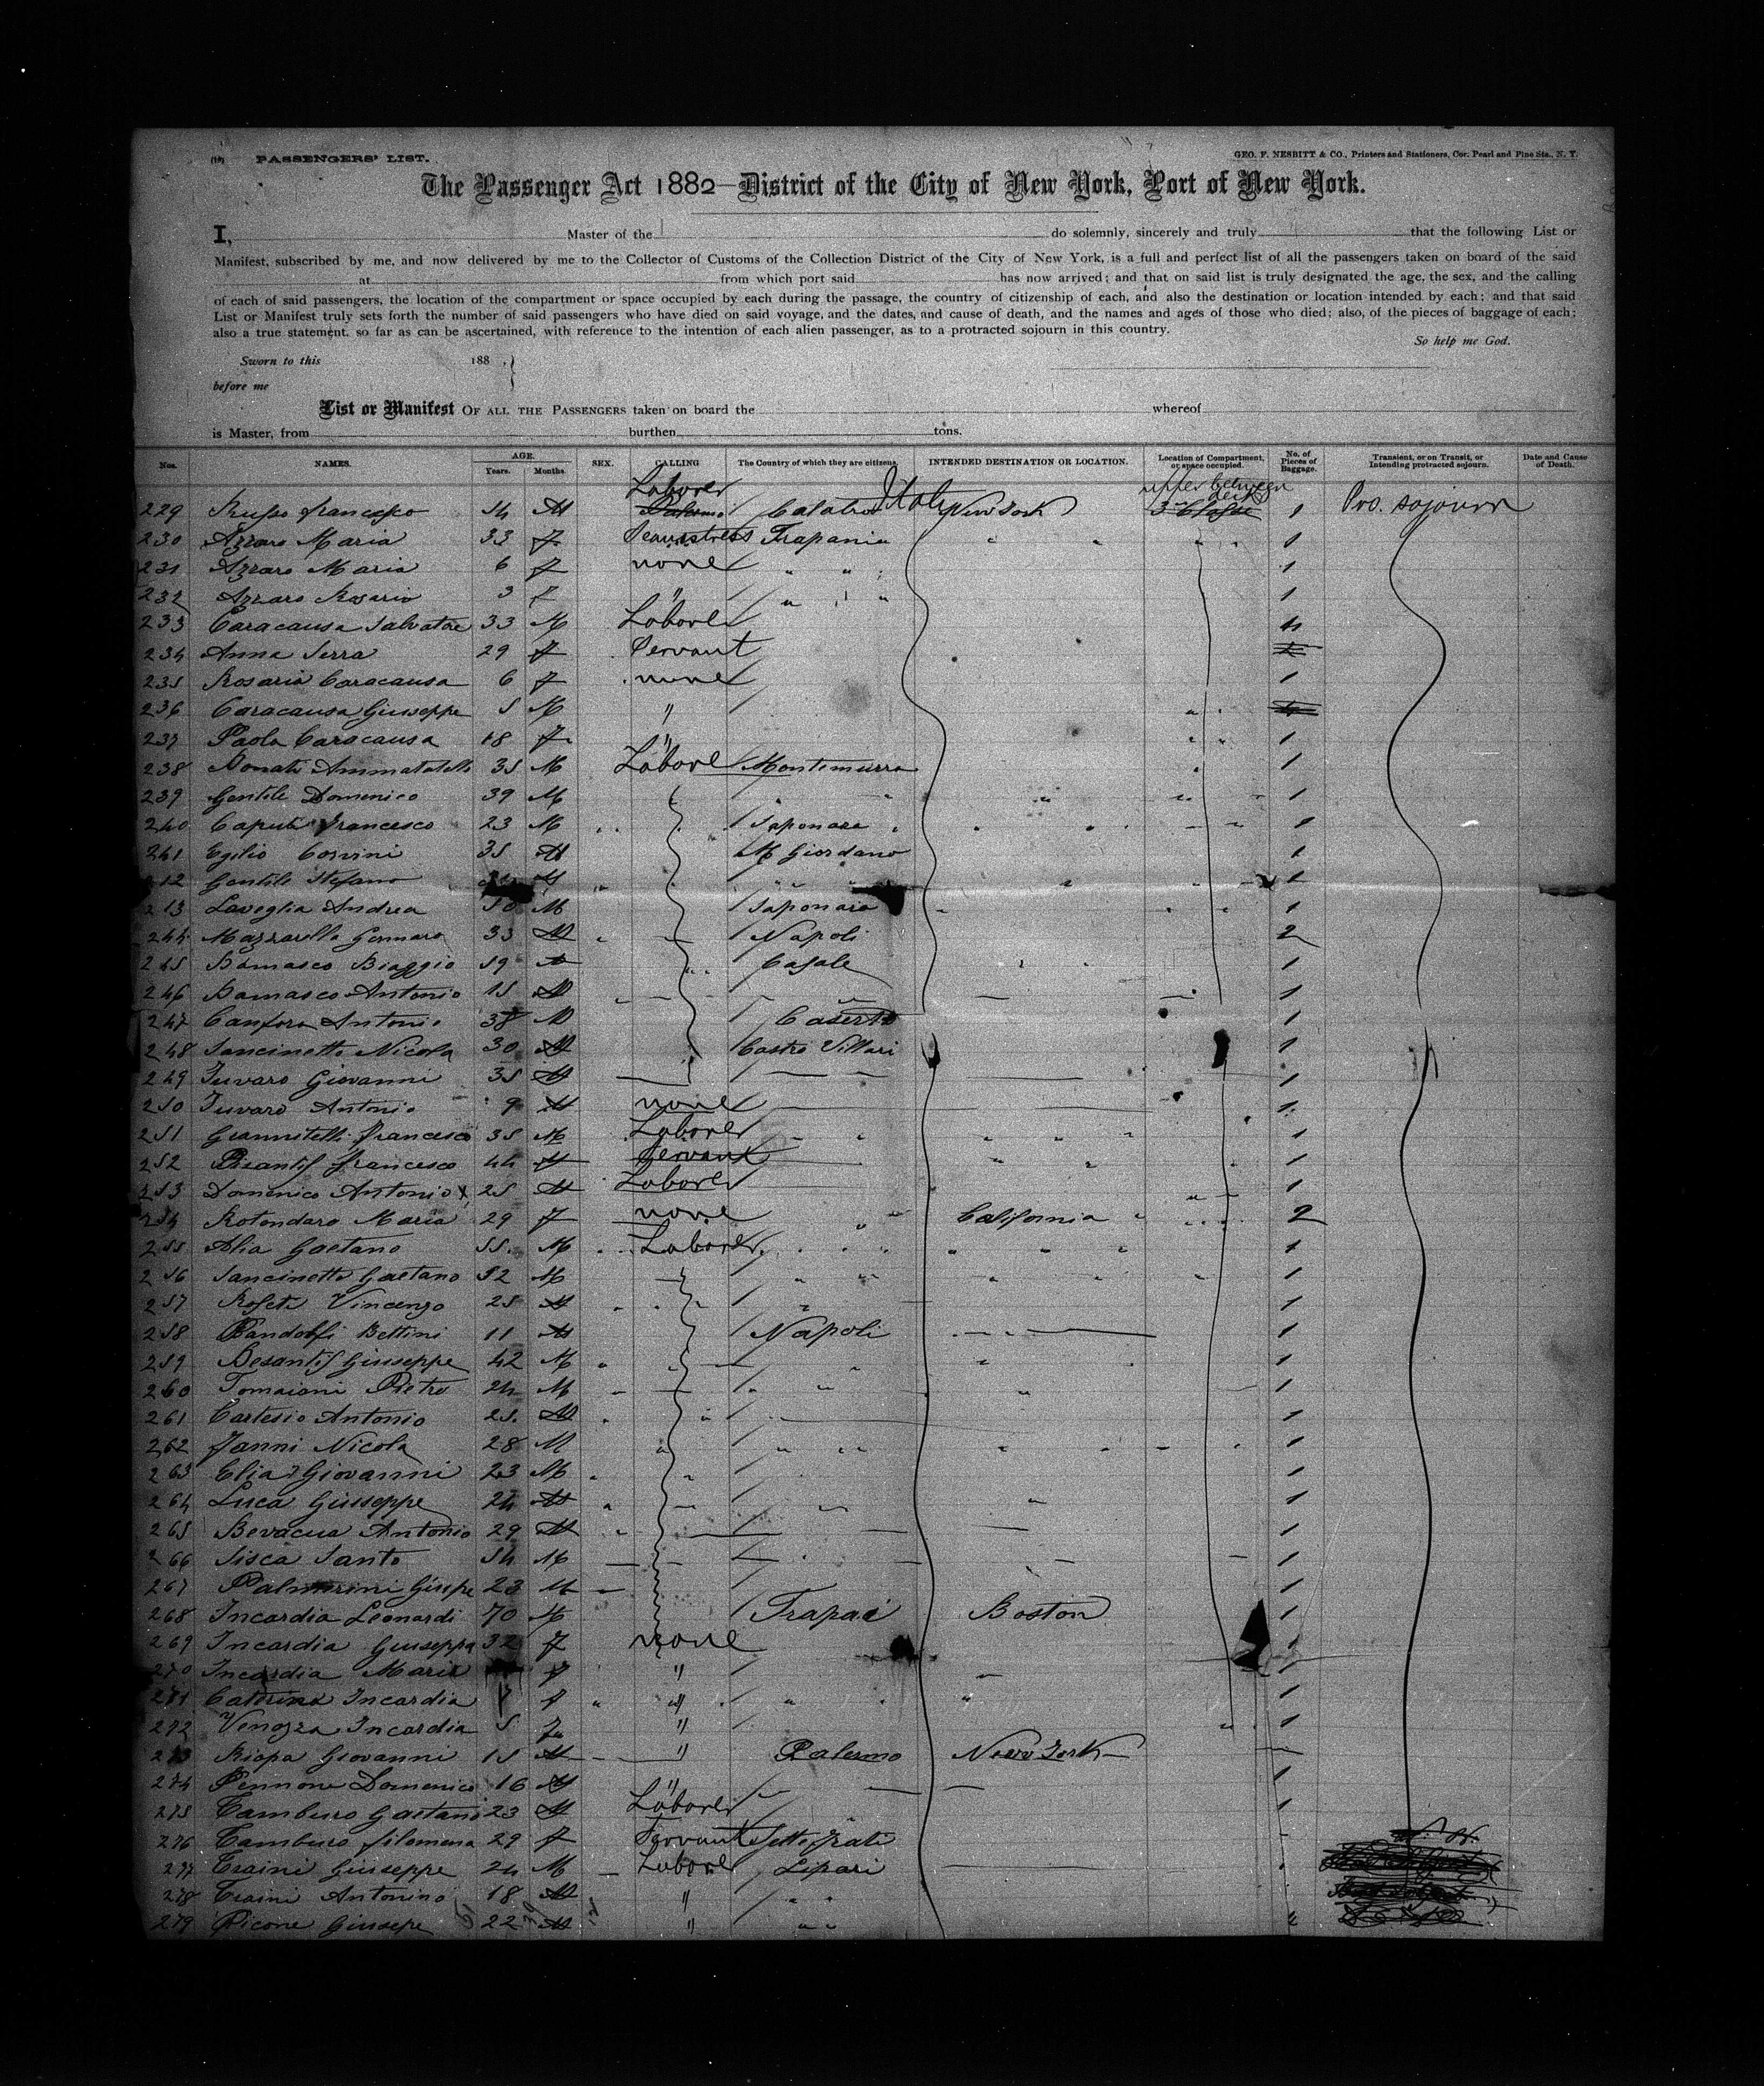 PASSENGERS' LIST.
GEO. F. NESBITT & CO., Printers and Stationers, Cor. Pearl and Pine Sts., N. Y.
The Passenger Act 1882—District of the City of New York, Port of New York.
I, Master of the do solemnly, sincerely and truly that the following List or
Manifest, subscribed by me, and now delivered by me to the Collector of Customs of the Collection District of the City of New York, is a full and perfect list of all the passengers taken on board of the said
at from which port said has now arrived; and that on said list is truly designated the age, the sex, and the calling
of each of said passengers, the location of the compartment or space occupied by each during the passage, the country of citizenship of each, and also the destination or location intended by each; and that said
List or Manifest truly sets forth the number of said passengers who have died on said voyage, and the dates, and cause of death, and the names and ages of those who died; also, of the pieces of baggage of each;
also a true statement, so far as can be ascertained, with reference to the intention of each alien passenger, as to a protracted sojourn in this country.
So help me God.
Sworn to this 188
before me
List or Manifest OF ALL THE PASSENGERS taken on board the whereof
is Master, from burthen tons.
Nos. NAMES. AGE. Years. Months. SEX. CALLING The Country of which they are citizens. INTENDED DESTINATION OR LOCATION. Location of Compartment, or space occupied. No. of Pieces of Baggage. Transient, or on Transit, or Intending protracted sojourn. Date and Cause of Death.
Laborer upper between deck
229 Russo Francesco 54 M Palermo Italy New York 3 Classe 1 Pro. sojourn
230 Azzaro Maria 33 F Seamstress Trapani " " 1
231 Azzaro Maria 6 F none " " 1
232 Azzaro Rosario 3 F " " " 1
233 Caracausa Salvatore 33 M Laborer
234 Anna Serra 29 F Servant
235 Rosaria Caracausa 6 F none 1
236 Caracausa Giuseppe 5 M "
237 Paola Caracausa 18 F " 1
238 Donati 35 M Laborer Montemurro 1
239 Gentile Domenico 39 M " 1
240 Caputi Francesco 23 M Saponara 1
241 Egilio Corvini 35 M M Giordano 1
242 Gentile Stefano M " 1
243 Laveglia Andrea 50 M Saponara 1
244 Mazzarella Gennaro 33 M Napoli 2
245 Damasco Biaggio 59 M Casale 1
246 Damasco Antonio 15 M 1
247 Canfora Antonio 38 M Caserta 1
248 Sancinetti Nicola 30 M Castro Villari 1
249 Iuvaro Giovanni 35 M 1
250 Iuvaro Antonio 9 M none 1
251 Giannitelli Francesco 35 M Laborer 1
252 Pisantis Francesco 44 M Servant 1
253 Domenico Antonio X 25 M Laborer 1
254 Rotondaro Maria 29 F none " California 2
255 Alia Gaetano 55 M Laborer " " 1
256 Sancinetti Gaetano 52 M " " 1
257 Roseti Vincenzo 25 M 1
258 Pandolfi Bettini 11 M Napoli 1
259 Desantis Giuseppe 42 M 1
260 Tomaioni Pietro 24 M 1
261 Cartesio Antonio 25 M 1
262 Janni Nicola 28 M 1
263 Elia Giovanni 23 M 1
264 Luca Giuseppe 24 M 1
265 Bevacua Antonio 29 M 1
266 Sisca Santo 54 M 1
267 Palmerini 23 M 1
268 Incardia Leonardi 70 M Boston 1
269 Incardia Giuseppa 32 F none 1
270 Incardia Maria F " 1
271 Caterina Incardia 7 F " " " 1
272 Incardia 5 F " 1
273 Giovanni 15 M " Palermo New York
274 Pennone Domenico 16 M " 1
275 Tamburo Gaetano 23 M Laborer 1
276 Tamburo Filomena 29 F Servant Settefrati
277 Traini Giuseppe 24 M Laborer Lipari
278 Traini Antonino 18 M " " "
279 Picone Giusepe 22 M " " "